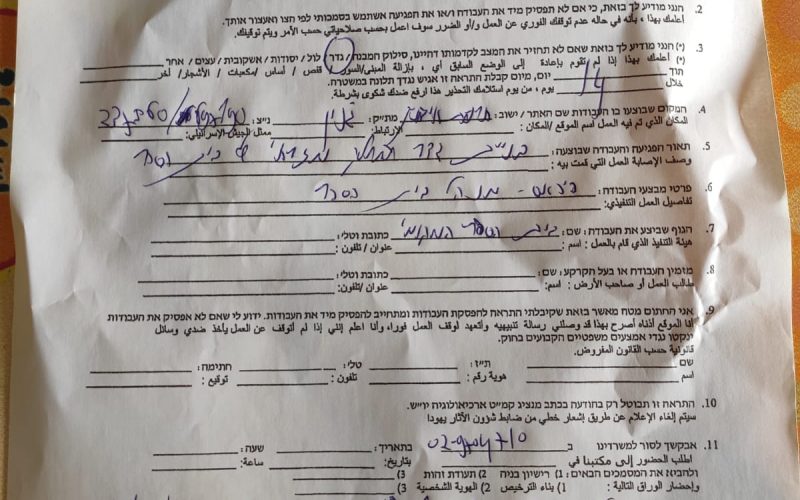 2. הנני מודיע לך בזאת, כי אם לא תפסיק מיד את העבודה ו/או את הפגיעה אשתמש בסמכותי לפי חצו ואעצור אותך.
أعلمك بهذا ، بأنه في حاله عدم توقفك الفوري عن العمل و/أو الضرور سوف اعمل بحسب صلاحياتي حسب الأمر ويتم توقيفك.
3. הנני מודיע לך בזאת שאם לא תחזיר את המצב לקדמותו דהיינו, סילוק המבנה / גדר / לול / יסודות / אשקובית / עצים / אחר
(*) أعلمك بهذا إذا لم تقوم بإعادة إلى الوضع السابق أي ، بإزالة المبنى/السور / قفص / أساس /مكعبات / الأشجار/ آخر
תוך 14 יום, מיום קבלת התראה זו אגיש נגדך תלונה במשטרה.
خلال يوم ، من يوم استلامك التحذير هذا ارفع ضدك شكوى بشرطة.
4. המקום שבוצעו בו העבודות שם האתר / ישוב: מת״ק: ג'נין נ״צ:
المكان الذي تم فيه العمل اسم الموقع /المكان: الارتباط: ممثل الجيش الإسرائيلي:
5. תאור הפגיעה והעבודה שבוצעה: בניית גדר בית ספר
وصف الإصابة العمل التي قمت بيه :
6. פרטי מבצעי העבודה: - מנהל בית ספר
تفاصيل العمل التنفيذي:
7. הגוף שביצע את העבודה: שם: בית הספר המקומי כתובת וטלי:
هيئة التنفيذ الذي قام بالعمل: اسم: عنوان / تلفون :
8. מזמין העבודה או בעל הקרקע: שם: כתובת וטלי:
طالب العمل او صاحب الأرض : اسم: عنوان /تلفون :
9. אני החתום מטה מאשר בזאת שקיבלתי התראה להפסקת העבודות ומתחייב להפסיק מיד את העבודות. ידוע לי שאם לא אפסיק את העבודות
أنا الموقع أدناه أصرح بهذا قد وصلني رسالة تنبيهيه وأتعهد لوقف العمل فورا، وأنا اعلم إنني إذا لم أتوقف عن العمل يأخذ ضدي وسائل
ינקטו נגדי אמצעים משפטיים הקבועים בחוק.
قانونية حسب القانون المفروض.
שם ת״ז: טלי: חתימה:
اسم هوية رقم : تلفون : توقيع :
10. התראה זו תבוטל רק בהודעה בכתב מנציג קמ״ט ארכיאולוגיה יו״ש.
سيتم إلغاء الإعلام عن طريق إشعار خطي من ضابط شؤون الآثار يهودا
11. אבקשך לסור למשרדינו ב בתאריך: שעה:
اطلب الحضور إلى مكتبنا في بتاريخ: ساعة:
ולהביא את המסמכים הבאים: 1) רישיון בניה 2) תעודת זהות 3)
وإحضار الوراق التالية : 1) بناء الترخيص 2) الهوية الشخصية 3)